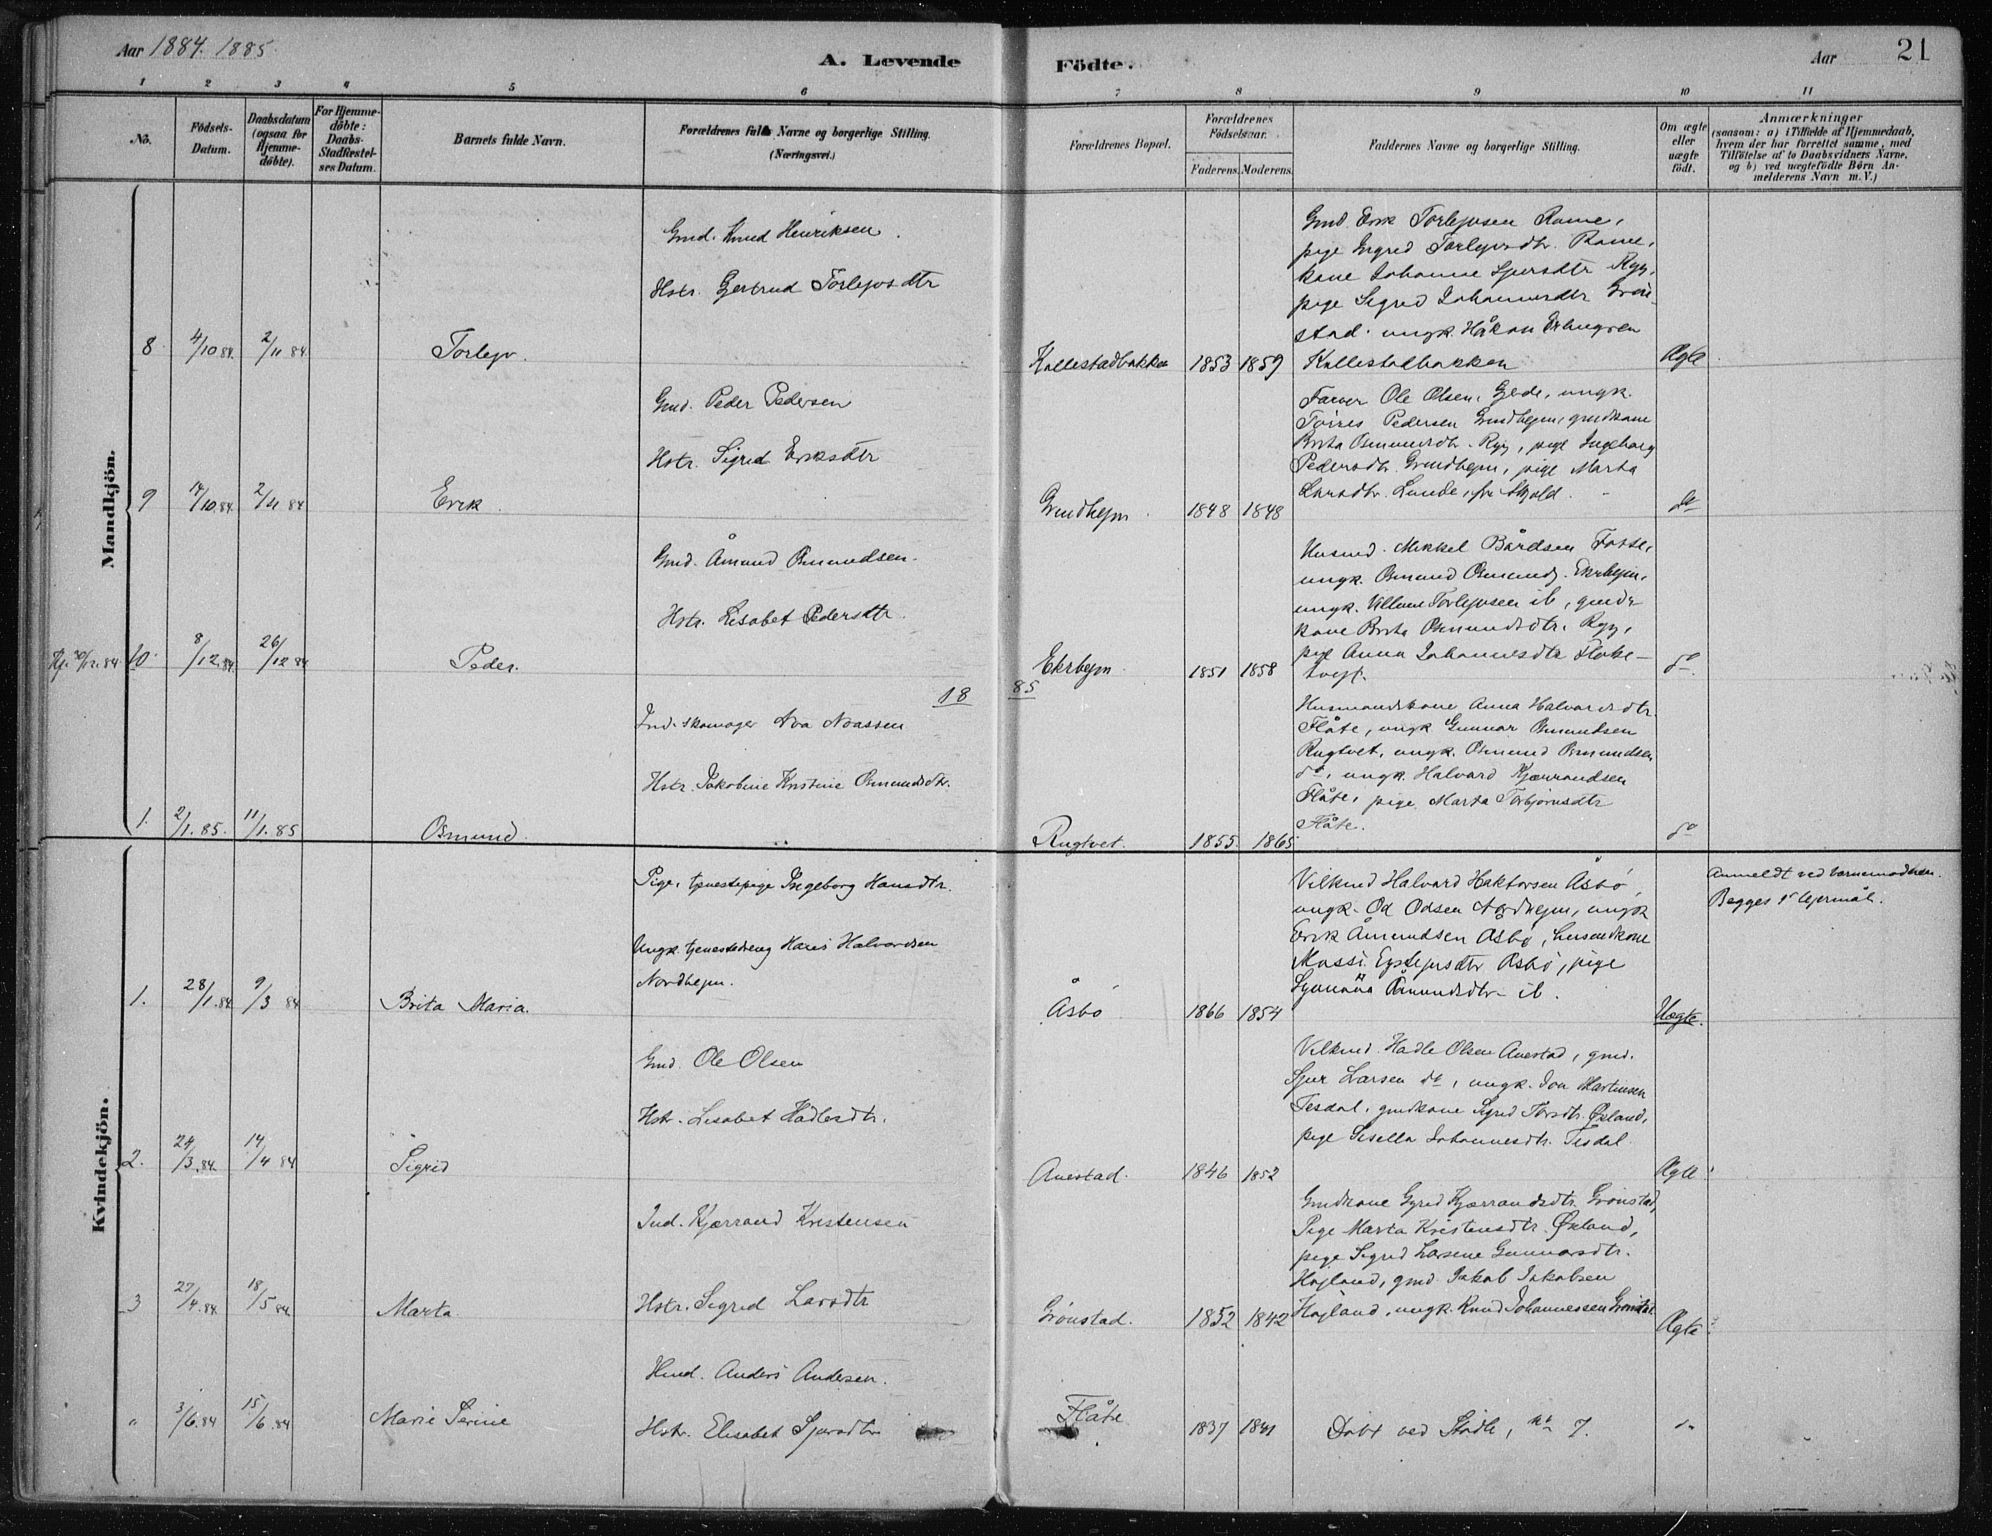 Aar 1884. 1885.
A. Levende
Födte.
Aar
21
1
2
3
4
5
6
7
8
9
10
11
No.
Födsels-
Datum.
Daabsdatum
(ogsaa for
Hjemme-
döbte).
For Hjemme-
döbte:
Daabs-
Stadfæstel-
ses Datum.
Barnets fulde Navn.
Forældrenes fulde Navne og borgerlige Stilling.
(Næringsvei.)
Forældrenes Bopæl.
Forældrenes
Födselsaar.
Faderens.
Moderens.
Faddernes Navne og borgerlige Stilling.
Om ægte
eller
uægte
födt.
Anmærkninger
(saasom: a) i Tilfælde af Hjemmedaab,
hvem der har forrettet samme, med
Tilföielse af to Daabsvidners Navne,
og b) ved uægtefödte Börn An-
melderens Navn m. V.)
Mandkjön.
8
4/10 84.
2/11 84
Torlejv.
Gmd. Knud Henriksen.
Hstr. Gertrud Torlejvsdtr
Kallestadbakken
1853
1859
Gmd. Erik Torlejvsen Rame,
pige Ingrid Torlejvsdtr. Rame,
kone Johanne Sjursdtr Ryg,
pige Sigrid Johannesdtr Grøn-
stad. ungk. Håkon
Kallestadbakken
Ægte
9
17/10.84.
2/11 84
Erik
Gmd. Peder Pedersen
Hstr. Sigrid Eriksdtr
Grindhejm.
1848
1848
Farver Ole Olsen, Gjerde, ungk.
Tørres Pedersen Grindhejm, gmdkone
Brita Osmundsdtr. Ryg, pige Ingeborg
Pedersdtr. Grindhejm, pige Marta
Larsdtr. Lunde, fra Skjold.
do
10
8/12.84.
26/12 84
Peder.
Gmd. Åmund Osmundsen.
Hstr. Lisabet Pedersdtr.
Ekrhejm
1851
1858
Husmd. Mikkel Bårdsen Fosse,
ungk. Osmund Osmunds. Ekrhejm,
ungk. Villum Torlejvsen ib, gmds
kone Brita Osmundsdtr. Ryg,
pige Anna Johannesdtr Flote-
tvejt.
do
18 85
1.
2/1.85.
11/1.85
Osmund.
Ind. skomager Ava Noassen
Hstr. Jakobine Kristine Osmundsdtr.
Rugtvet.
1855
1865
Husmandskone Anna Halvardsdtr.
Flåte, ungk Gunnar Osmundsen
Rugtvet, ungk. Osmund Osmundsen
do, ungk. Halvard Kjærrandsen
Flåte, pige Marta Torbjørnsdtr
Flåte.
do
Kvindekjön.
1.
28/1.84
9/3 84
Brita Maria.
Pige, tjenestepige Ingeborg Hansdtr.
Ungk. tjenestedreng Hans Halvardsen
Nordhejm.
Åsbø
1866
1854
Vilkmd Halvard Haktorsen Åsbø,
ungk. Od Odsen Nordhejm, ungk
Erik Åmundsen Åsbø, husmdkone
Massi Ejstejnsdtr Åsbø, pige
Åmundsdtr ib.
Uægte.
Anmeldt ved barnemoderen.
Begges 1ste lejermål.
2.
24/3.84.
14/4 84
Sigrid
Gmd. Ole Olsen
Hstr. Lisabet Hadlesdtr.
Avestad.
1846
1852
Vilkmd. Hadle Olsen Avestad, gmd.
Sjur Larsen do, ungk. Jon Martinsen
Tesdal, gmdkone Sigrid Torsdtr. Øxland,
pige Sisella Johannesdtr. Tesdal.
Ægte
3
27/4.84.
18/5 84
Marta
Ind. Kjærrand Kristensen
Hstr. Sigrid Larsdtr
Grønstad.
1852
1842
Gmdkone Gyrid Kjærrandsdtr. Grønstad,
Pige Marta Kristensdtr. Øxland,
pige Sigrid Larsene Gunnarsdtr.
Højland, gmd Jakob Jakobsen
Højland, ungk. Knud Johannessen Grønstad
Ægte
"
3/6.84
15/6.84
Marie Serine
Hmd. Anders Andersen.
Hstr. Elisabet Sjursdtr
Flåte
1837
1841
Døbt ved Stødle, No 7.